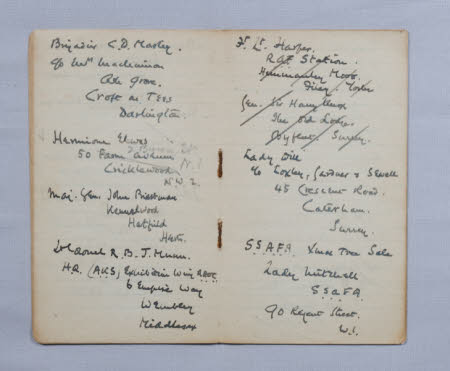 Brigadier C.D. Marley.
c/o Mrs Maclainion
Oak Grove.
Croft on Tees
Darlington.
Hermione Elwes
50 Farm Avenue
Cricklewood N.1
N.W.2.
Maj: Gen: John Priestman
Kennelwood
Hatfield
Herts.
Colonel R.B.J. Munn.
H.Q. (AKS) Exhibition Wing
6 Empire Way
Wembley
Middlesex
Ft. Lt. Harper.
RAF Station.
Hunmanby Moor.
Filey. Yorks
Gen. Sir Harry
The Old Lodge.
Byfleet. Surrey.
Lady Dill
c/o Coxley, Gardner & Sewell
45 Crescent Road.
Caterham.
Surrey.
S.S.A.F.A. Xmas Tree Sale
Lady Mitchell
S.S.A.F.A.
90 Regent Street.
W.1.